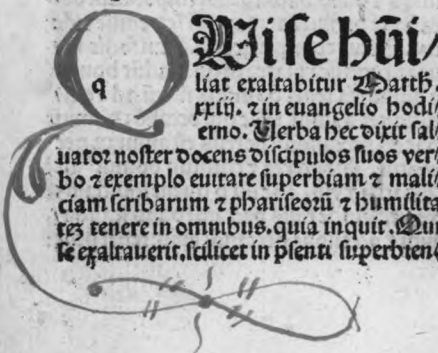 QUi se hūi/
liat exaltabitur Matth.
xxiij. ⁊ in euangelio hodi/
erno. Uerba hec dixit sal/
uator noster docens discipulos suos ver/
bo ⁊ exemplo euitare superbiam ⁊ mali/
ciam scribarum ⁊ phariseoꝝ ⁊ humilita
teꝫ tenere in omnibus. quia inquit. Qui
se exaltauerit. scilicet in p̄senti superbien